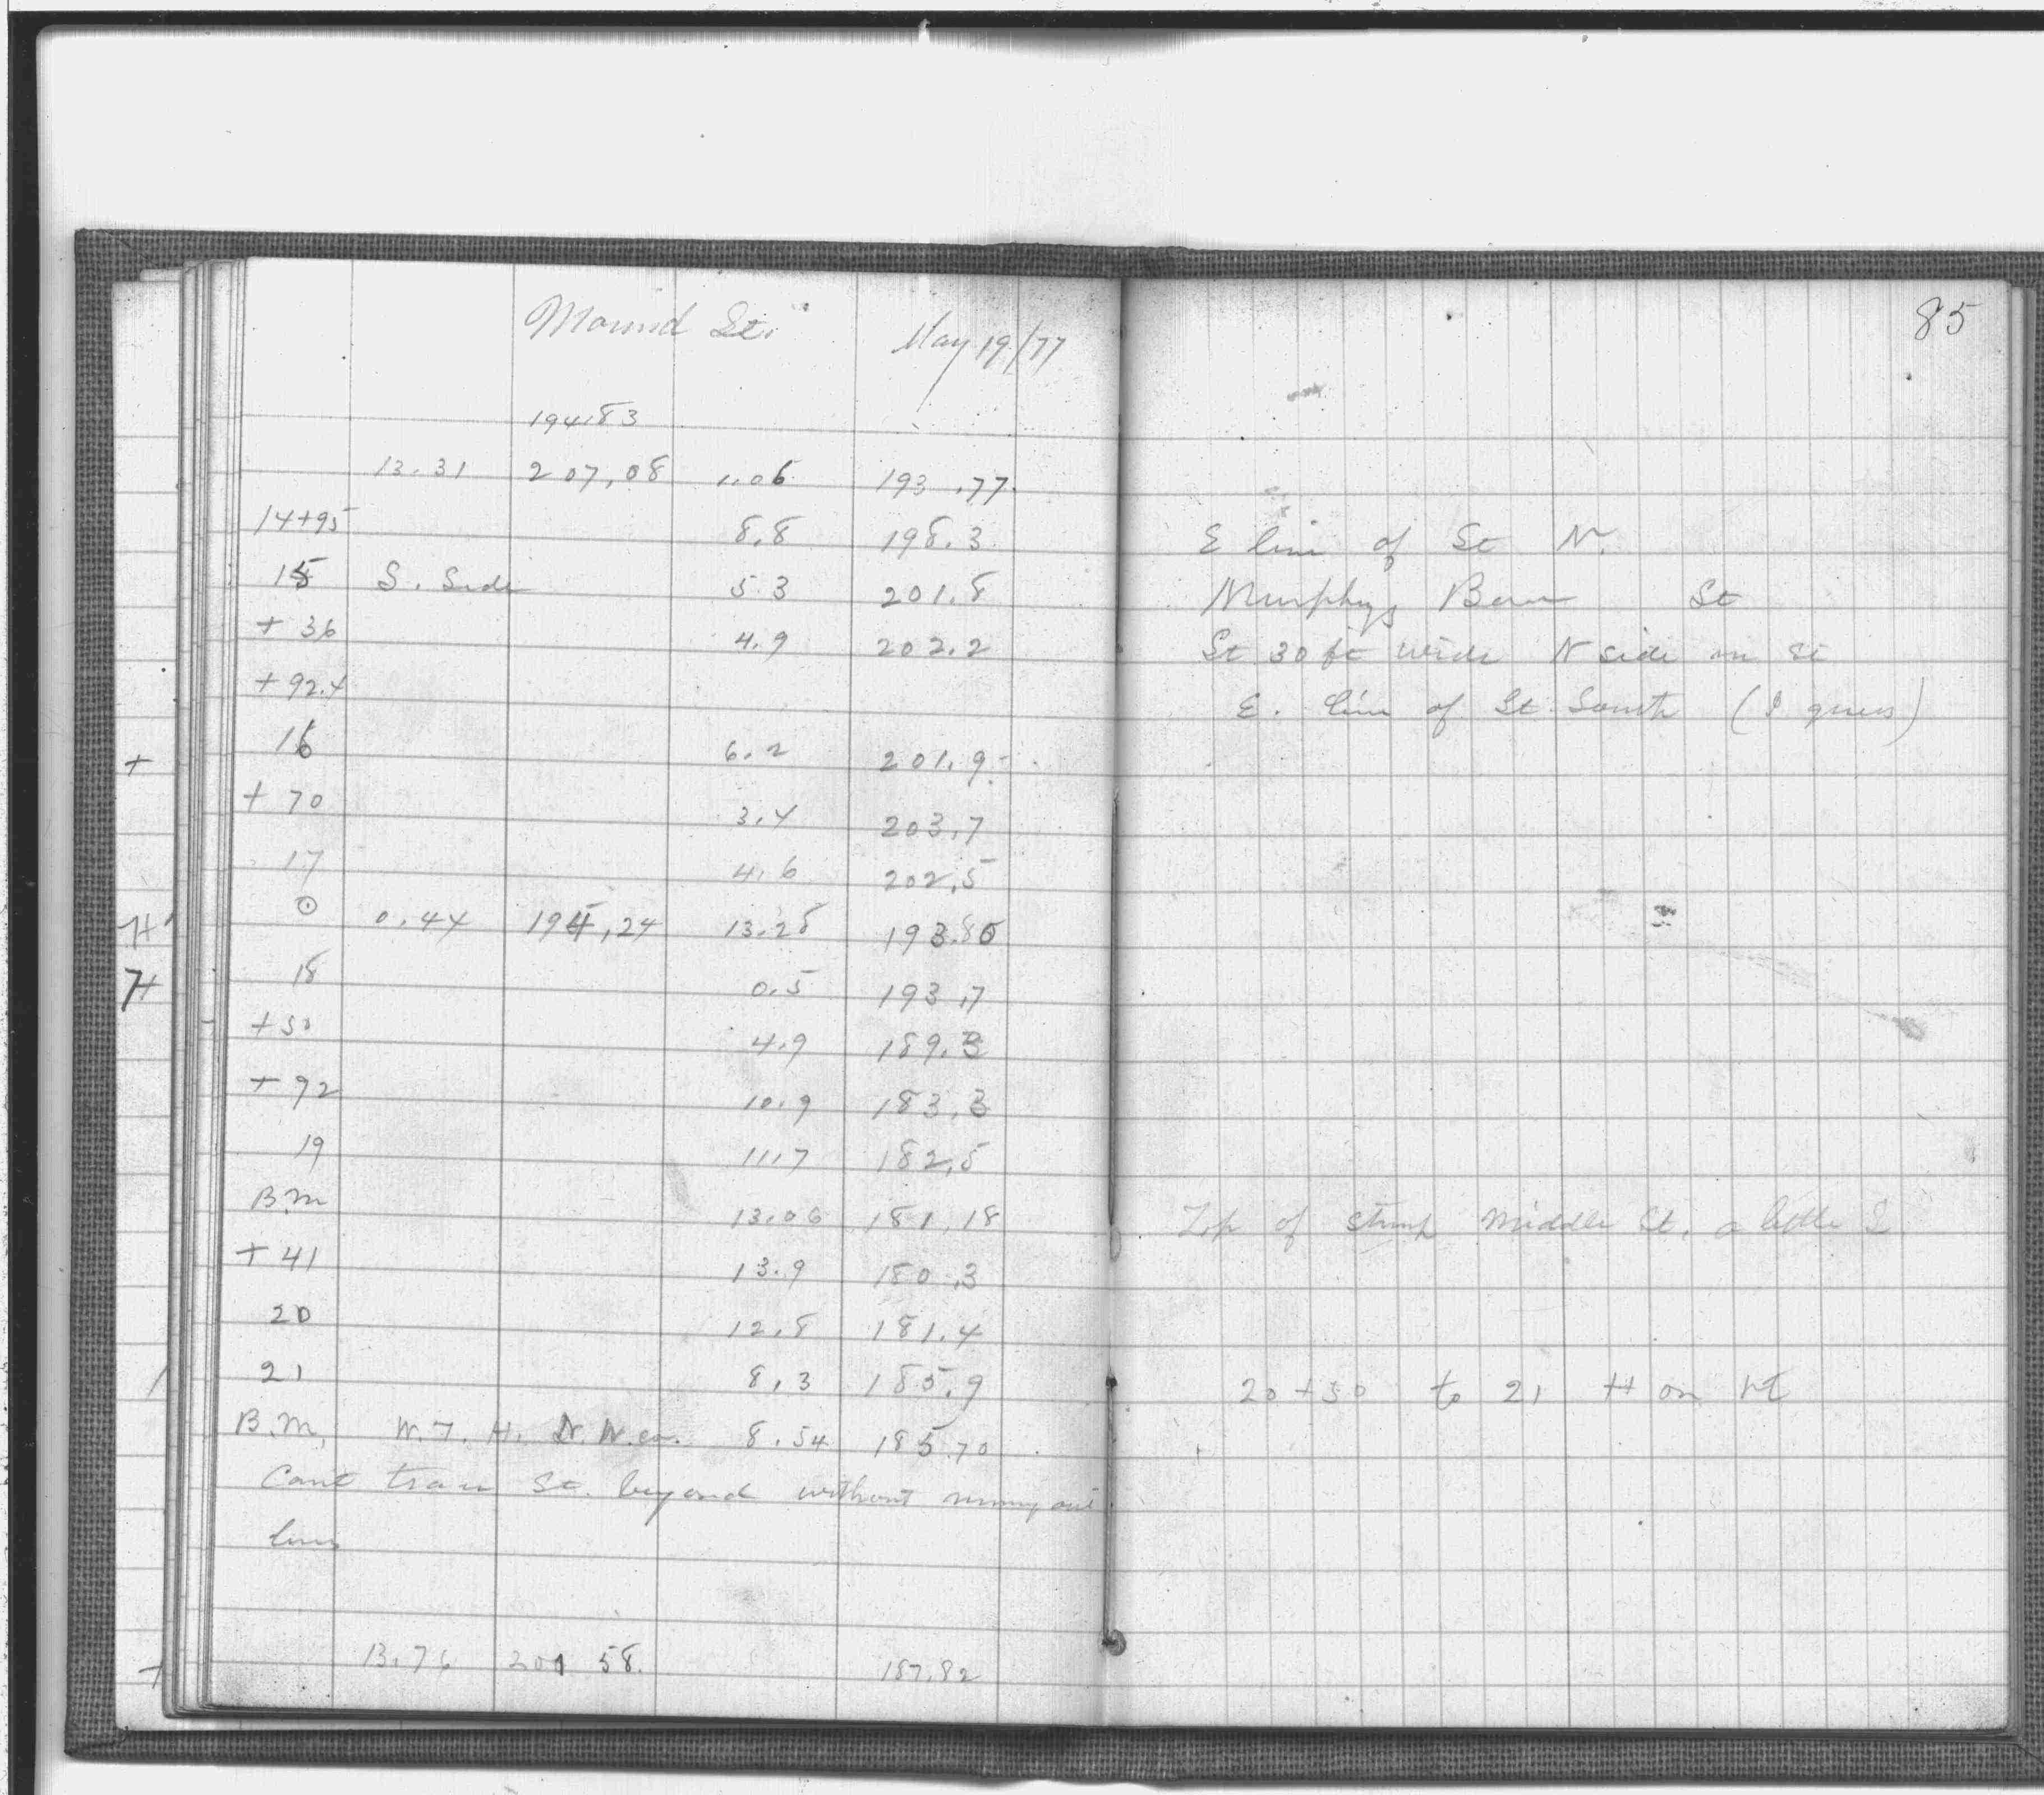 Mound St. May 19/77
85
194.83
13.31 207.08 1.06 193.77
14+95 8.8 198.3 E line of St N.
15 S. Side 5.3 201.8 Murphys Barn St
+ 36 4.9 202.2 St 30 ft wide N side on St
+ 92.4 E. line of St. South (I guess)
+ 16 6.2 201.9
+ 70 3.4 203.7
17 4.6 202.5
⊙ 0.44 194.24 13.28 193.80
18 0.5 193.7
+50 4.9 189.3
+ 92 10.9 183.3
19 11.7 182.5
B.M 13.06 181.18 Top of stump Middle St. a little S
+ 41 13.9 180.3
20 12.8 181.4
21 8.3 185.9 20+50 to 21 H on rt
B.M. W.T. H. N.W. cor. 8.54 185.70
Cant trace St. beyond without running out
lines
13.76 201 58. 187.82